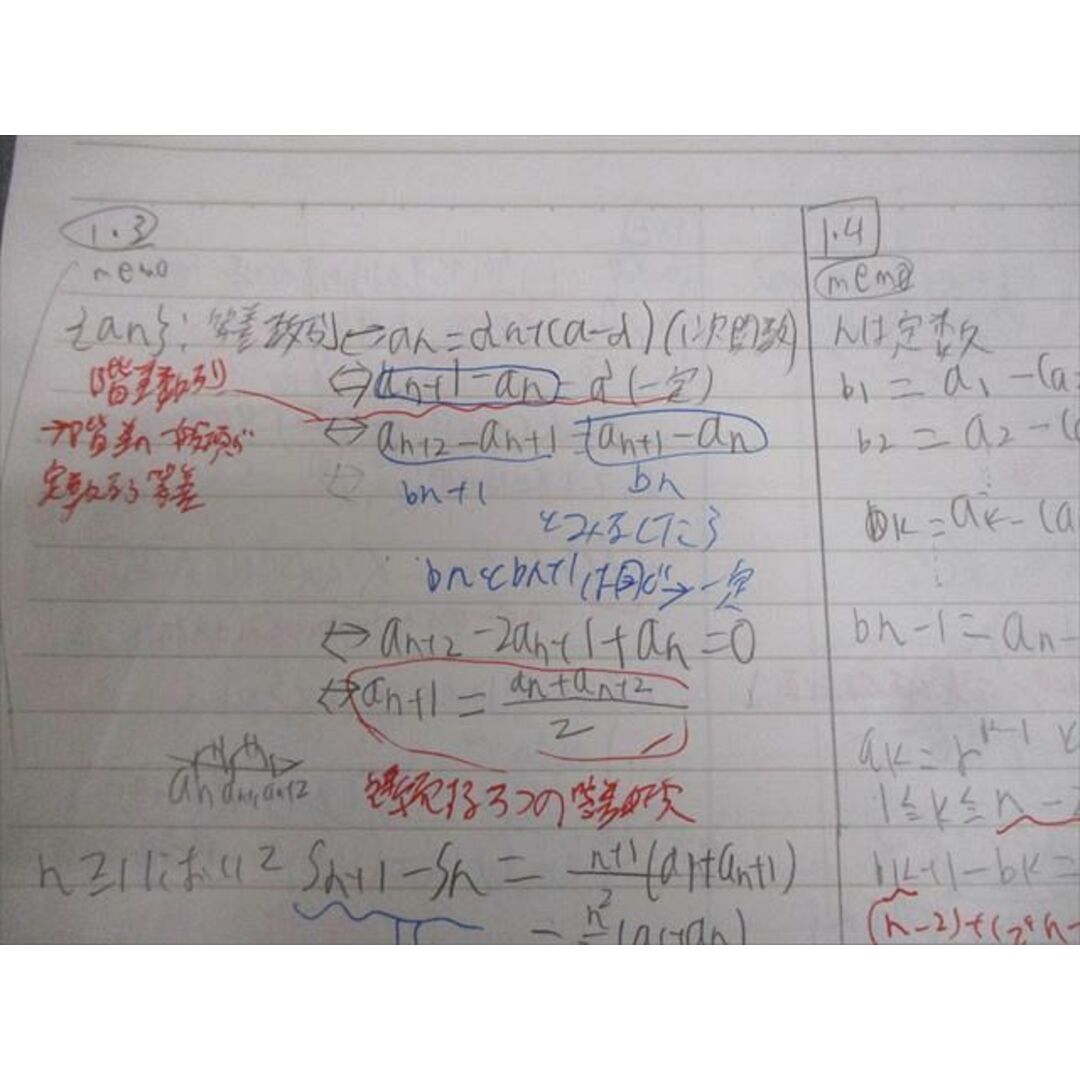 1.3
memo
{an}: 等差数列⇔an=dn+(a-d) (1次関数)
(階差数列)
⇔an+1-an=d(一定)
→階差の一般項が
定数なら等差
⇔an+2-an+1=an+1-an
bn+1 bn
とみなしたころ
bnとbn+1は同じ→一定
⇔an+2-2an+1+an=0
⇔an+1=an+an+2/2
an an+1 an+2
3つの等差
n≧1において Sn+1-Sn=n+1/2(a1+an+1)
-n/2(a1+an)
1.4
memo
nは定数
b1=a1-(a
b2=a2-(
bk=ak-(a
bn-1=an-
ak=r^k-1
1≦k≦n-2
bk+1-bk=
(n-2)+(